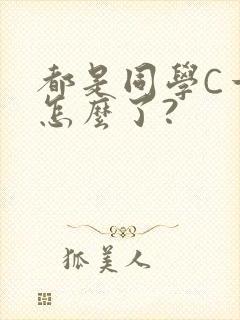 都是同學C
怎麼了?
狐美人